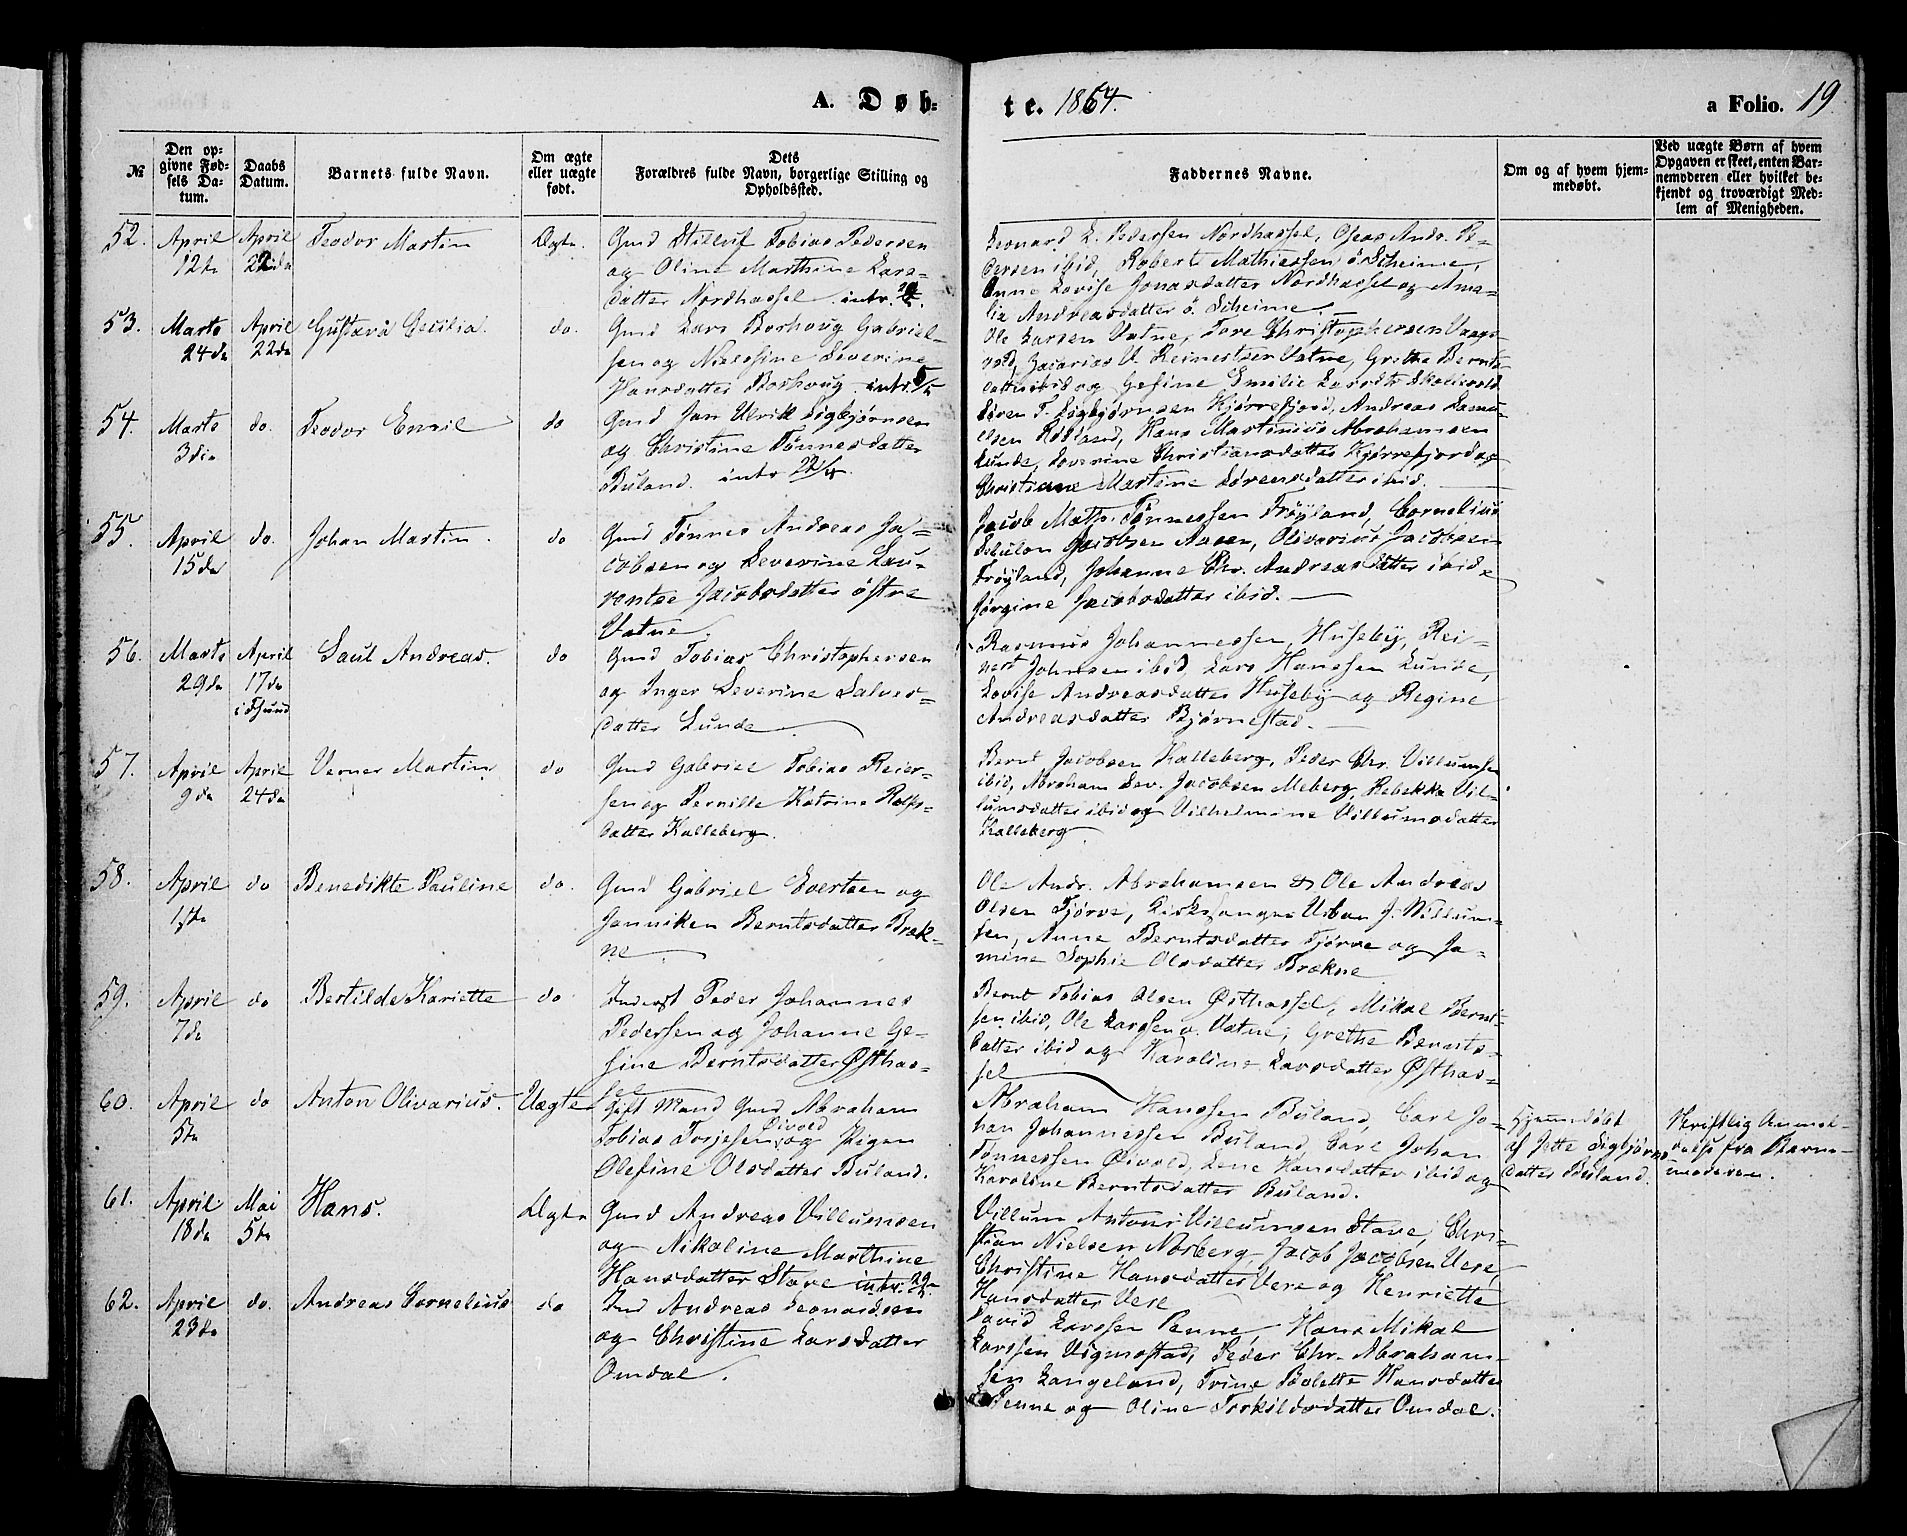 A. Døb-
te. 1864.
a Folio. 19
№
Den op-
givne Fød-
sels Da-
tum.
Daabs
Datum.
Barnets fulde Navn.
Om ægte
eller uægte
født.
Dets
Forældres fulde Navn, borgerlige Stilling og
Opholdssted.
Faddernes Navne.
Om og af hvem hjem-
medøbt.
Ved uægte Børn af hvem
Opgaven er skeet, enten Bar-
nemoderen eller hvilket be-
kjendt og troværdigt Med-
lem af Menigheden.
52.
April
12te
April
22de
Teodor Martin
Ægte.
Gmd Stilluf Tobias Pedersen
og Oline Marthine Lars-
datter Nordhassel. intr.
Leonard L. Pedersen Nordhassel, Oseas Andr. Pe-
dersen ibid, Robert Mathiessen ö. Skeime,
Anne Lovise Jonasdatter Nordhassel og Ama-
lia Andreasdatter ö. Skeime.
53.
Marts
24de
April
22de
Gustava Cecilia.
do.
Gmd Lars Borhoug Gabriel-
sen og Nielsine Severine
Hansdatter Borhoug. intr.
Ole Larsen Vatne, Tore Christophersen Vaags-
vold, Zacarias V. Reinertsen Vatne, Grethe Bernts-
datter ibid og Gesine Emilie Larsdtr Skollevold
54.
Marts
3die
do.
Teodor Emil
do
Gmd Jan Ulrik Sigbjørnsen
og Christine Tønnesdatter
Buland. intr 22/4.
Søren T. Sigbjørnsen Kjørrefjord, Andreas Samu-
elsen Rødland, Hans Martinius Abrahamsen
Lunde, Severine Christiansdatter Kjørrefjord og
Christiane Martine Sørensdatter ibid.
55.
April
15de
do.
Johan Martin.
do
Gmd Tønnes Andreas Ja-
cobsen og Severine Lau-
rentse Jacobsdatter östre
Vatne.
Jacob Math. Tønnessen Frøyland, Cornelius
Sebulon Jacobsen Aasen, Olivarius Jacobsen
Frøyland, Johanne Chr. Andreasdatter ibid &
Jørgine Jacobsdatter ibid.
56.
Marts
29de
April
17de
i Fsund
Saul Andreas.
do
Gmd Tobias Christophersen
og Inger Severine Salves-
datter Lunde
Rasmus Johannessen, Huseby, Rei-
nert Johnsen ibid, Lars Hanssen Lunde,
Lovise Andreasdatter Huseby og Regine
Andreasdatter Bjørnestad.
57.
April
9de
April
24de
Verner Martin
do
Gmd Gabriel Tobias Reier-
sen og Pernille Katrine Rolfs-
datter Kalleberg.
Bernt Jacobsen Kalleberg, Peder Chr. Villumsen
ibid, Abraham Sev. Jacobsen Meberg, Rebekka Vil-
lumsdatter ibid og Vilhelmine Villumsdatter
Kalleberg
58.
April
1ste
do
Benedikte Pauline
do.
Gmd Gabriel Evertsen og
Janniken Berntsdatter Bræk-
ne.
Ole Andr. Abrahamsen & Ole Andreas
Olsen Tjørve, Kirksanger Urban J. Villum-
sen, Anne Berntsdatter Tjørve og Ja-
mine Sophie Olsdatter Brækne
59.
April
7de
do
Bertilde Kariette
do
Inderst Peder Johannes
Pedersen og Johanne Ge-
sine Berntsdatter Østhas-
sel
Bernt Tobias Olsen Østhassel, Mikal Bernt-
sen ibid, Ole Larssen v. Vatne, Grethe Bernts-
datter ibid og Karoline Larsdatter Østhas-
sel
60.
April
5te
do
Anton Olivarius.
Uægte
Gift Mand Gmd Abraham
Tobias Torjesen Øivold og Pigen
Olefine Olsdatter Buland.
Abraham Hanssen Buland, Carl Jo-
han Johannessen Buland, Carl Johan
Tønnessen Øivold, Lene Hansdatter ibid og
Karoline Berntsdatter Buland.
Hjemmdøbt
af Jette Sigbjørns-
datter Buland.
Skriftlig Anmel-
delse fra Barne-
moderen.
61.
April
18de
Mai
5te
Hans.
Ægte
Gmd Andreas Villumsen
og Nikoline Marthine
Hansdatter Stave intr.
Villum Antoni Villumsen Stave, Chri-
stian Nielsen Norberg, Jacob Jacobsen Vere,
Christine Hansdatter Vere og Henriette
Hansdatter Vere
62.
April
23de
do.
Andreas Cornelius
do
Ind Andreas Leonardsen
og Christine Larsdatter
Omdal.
David Larssen Penne, Hans Mikal
Larssen Vigmostad, Peder Chr. Abraham-
sen Langeland, Trine Bolette Hansdatter
Penne og Oline Torkildsdatter Omdal.